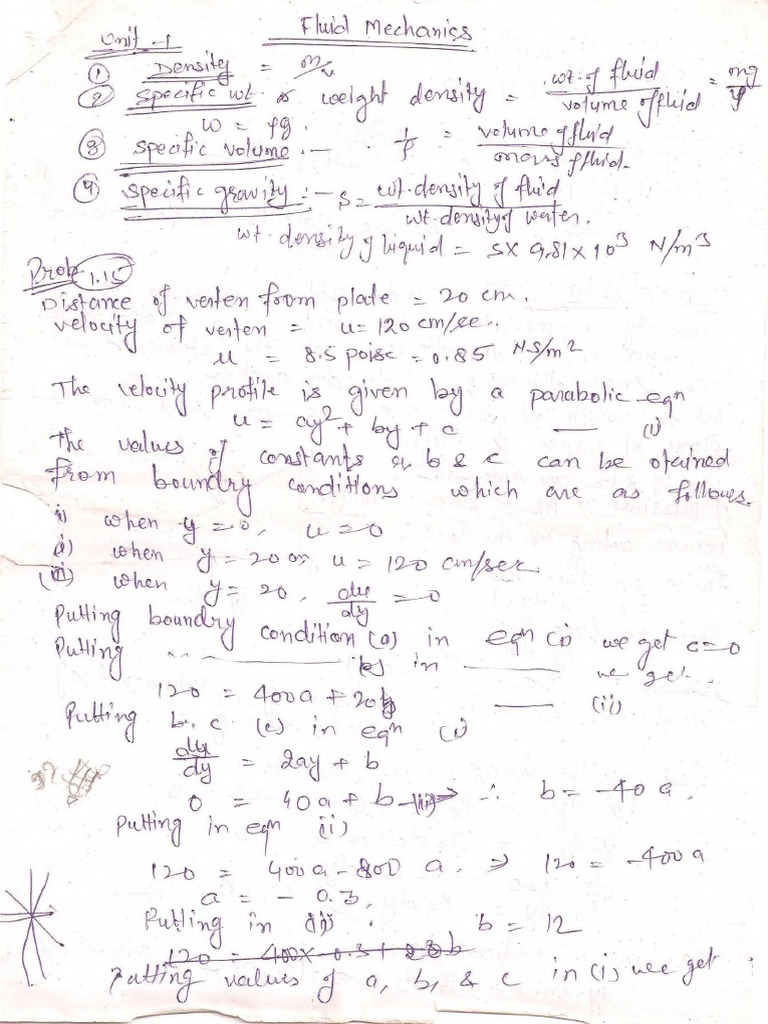 Fluid Mechanics
Unit-1
① Density = m/v
② Specific wt. or weight density = wt. of fluid / volume of fluid = mg/v
w = ρg.
③ Specific volume :- 1/ρ = volume of fluid / mass of fluid.
④ Specific gravity :- S = wt. density of fluid / wt. density of water.
wt. density of liquid = S x 9.81 x 10³ N/m³
Prob 1.15
Distance of verten from plate = 20 cm.
velocity of verten = u = 120 cm/sec.
μ = 8.5 poise = 0.85 NS/m²
The velocity profile is given by a parabolic eqn
u = ay² + by + c — (i)
The values of constants a, b & c can be otained
from boundry conditions which are as follows.
i) when y = 0, u = 0
ii) when y = 20 cm u = 120 cm/sec
(iii) when y = 20, du/dy = 0
Putting boundry condition (a) in eqn (i) we get c = 0
Putting — (b) in — we get.
120 = 400a + 20b — (ii)
Putting b.c (c) in eqn (i)
du/dy = 2ay + b
0 = 40a + b -(iii)→ ∴ b = -40a.
Putting in eqn (ii)
120 = 400a - 800a. ⇒ 120 = -400a
a = - 0.3.
Putting in (ii) b = 12
120 = 400x -0.3 + 20b
Putting values of a, b, & c in (i) we get